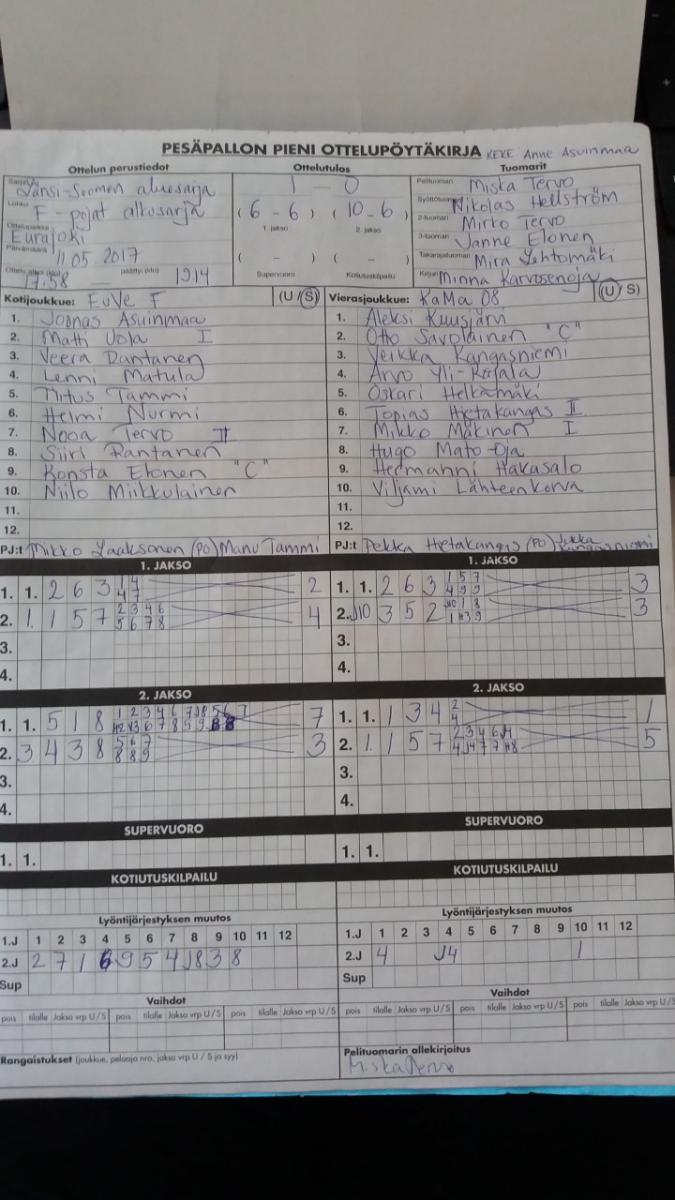 PESÄPALLON PIENI OTTELUPÖYTÄKIRJA KEKE Anne Asuinmaa
Ottelun perustiedot
Länsi-Suomen aluesarja
F-pojat alkusarja
Eurajoki
11.05 2017
17.58 — 19.14
Ottelutulos
1 - 0
(6 - 6) (10 - 6)
1. jakso 2. jakso
( - ) ( - )
Supervuoro Kotiutuskilpailu
Tuomarit
Pelituomari Miska Tervo
Nikolas Hellström
2-tuomari Mirko Tervo
3-tuomari Janne Elonen
Takarajatuomari Mira Lehtomäki
Kirjuri Minna Karvosenoja
Kotijoukkue: EuVe F (U/S)
1. Joonas Asuinmaa
2. Matti Uola I
3. Veera Rantanen
4. Lenni Matula
5. Titus Tammi
6. Helmi Nurmi
7. Nooa Tervo II
8. Siiri Rantanen
9. Konsta Elonen "C"
10. Niilo Miikkulainen
11.
12.
PJ:t Mikko Laaksonen (PO) Manu Tammi
Vierasjoukkue: KaMa 08 (U/S)
1. Aleksi Kuusjärvi
2. Otto Savolainen "C"
3. Veikka Kangasniemi
4. Arvo Yli-Rajala
5. Oskari Helkämäki
6. Topias Hietakangas II
7. Mikko Mäkinen I
8. Hugo Mato-oja
9. Hermanni Hakasalo
10. Viljami Lähteenkorva
11.
12.
PJ:t Pekka Hietakangas (PO) Jukka Kangasniemi
1. JAKSO
1. 1. 2 6 3 1 4 2
4 7
2. 1. 1 5 7 2 3 4 6 4
5 6 7 8
3.
4.
1. JAKSO
1. 1. 2 6 3 1 5 7 3
4 9 9
2. J10 3 5 2 3
3.
4.
2. JAKSO
1. 1. 5 1 8 7
2. 3 4 3 8 5 6 7 3
8 8 9
3.
4.
2. JAKSO
1. 1. 1 3 4 2 1
4
2. 1. 1 5 7 5
3.
4.
SUPERVUORO
1. 1.
SUPERVUORO
1. 1.
KOTIUTUSKILPAILU
KOTIUTUSKILPAILU
Lyöntijärjestyksen muutos
1.J 1 2 3 4 5 6 7 8 9 10 11 12
2.J 2 7 1 6 9 5 4 J8 3 8
Sup
Lyöntijärjestyksen muutos
1.J 1 2 3 4 5 6 7 8 9 10 11 12
2.J 4 J4 1
Sup
Vaihdot
pois tilalle Jakso vrp U/S pois tilalle Jakso vrp U/S pois tilalle Jakso vrp U/S
Vaihdot
pois tilalle Jakso vrp U/S pois tilalle Jakso vrp U/S pois tilalle Jakso vrp U/S
Rangaistukset (joukkue, pelaaja nro, jakso vrp U/S ja syy)
Pelituomarin allekirjoitus
Miska Tervo